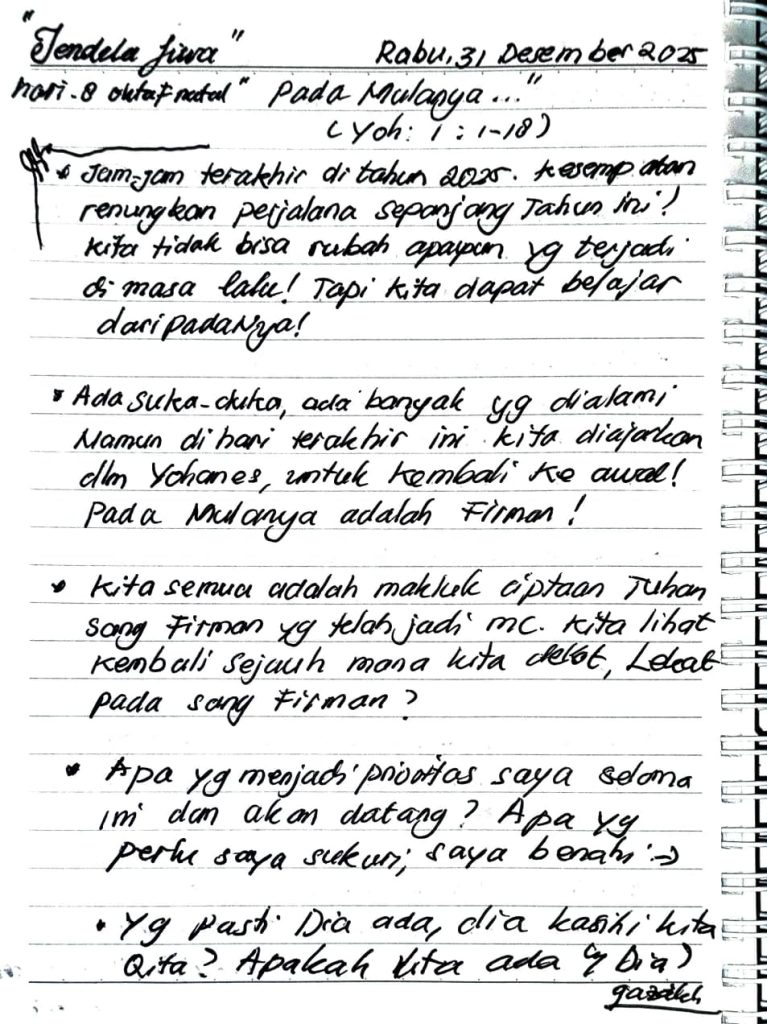 "Jendela Jiwa" Rabu, 31 Desember 2025
hari-8 oktaf natal "Pada Mulanya..."
(Yoh: 1 : 1-18)
• Jam-jam terakhir di tahun 2025. Kesempatan
renungkan perjalana sepanjang Tahun ini!
Kita tidak bisa rubah apapun yg terjadi
di masa lalu! Tapi kita dapat belajar
daripadaNya!
• Ada suka-duka, ada banyak yg dialami
Namun di hari terakhir ini kita diajarkan
dlm Yohanes, untuk kembali ke awal!
Pada Mulanya adalah Firman!
• Kita semua adalah makluk ciptaan Tuhan
Sang Firman yg telah jadi mc. Kita lihat
kembali sejauh mana kita dekat, Lekat
pada sang Firman?
• Apa yg menjadi prioritas saya selama
ini dan akan datang? Apa yg
perlu saya sukuri, saya benahi :-)
• Yg pasti Dia ada, dia kasihi kita
Qita? Apakah kita ada Dia?